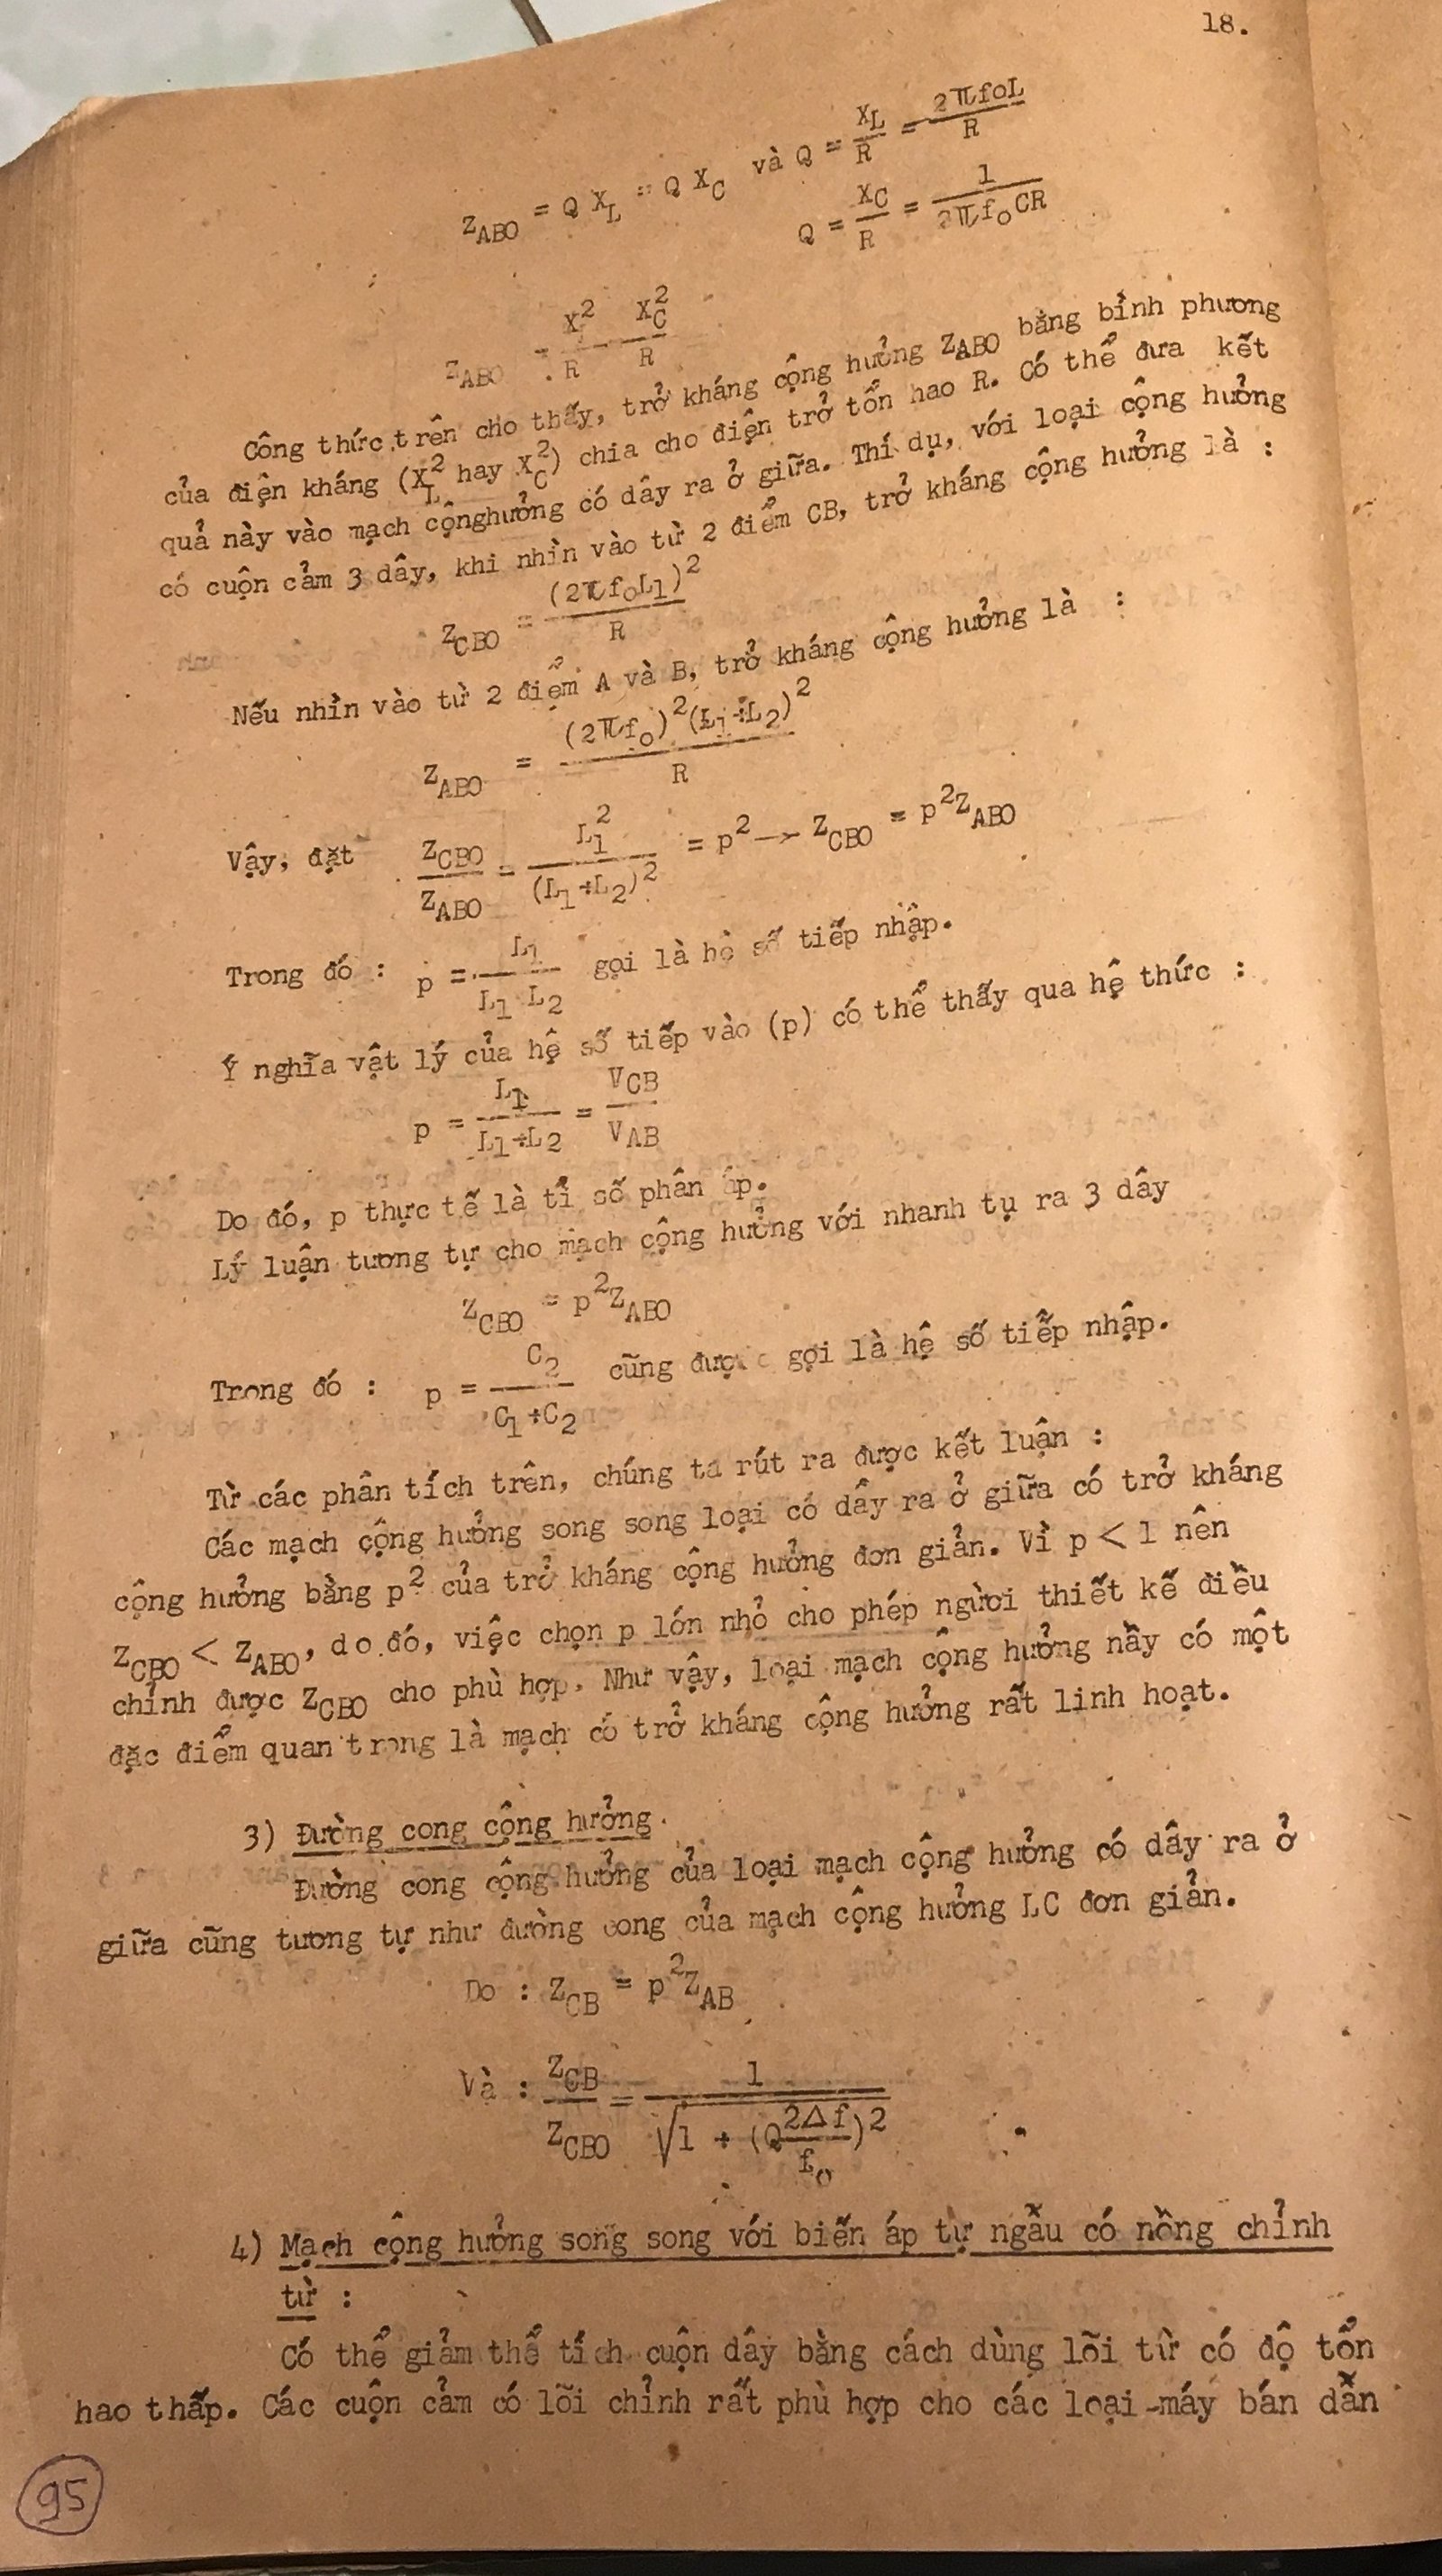 18.
Z_ABO = Q X_L = Q X_C và Q = X_L/R = 2πfoL/R
Q = X_C/R = 1/(2πf_oCR)
Z_ABO = X²/R = X_C²/R
Công thức trên cho thấy, trở kháng cộng hưởng Z_ABO bằng bình phương
của điện kháng (X_L² hay X_C²) chia cho điện trở tổn hao R. Có thể đưa kết
quả này vào mạch cộnghưởng có dây ra ở giữa. Thí dụ, với loại cộng hưởng
có cuộn cảm 3 dây, khi nhìn vào từ 2 điểm CB, trở kháng cộng hưởng là :
Z_CBO = (2πf_oL_1)²/R
Nếu nhìn vào từ 2 điểm A và B, trở kháng cộng hưởng là :
Z_ABO = (2πf_o)²(L_1+L_2)²/R
Vậy, đặt Z_CBO/Z_ABO = L_1²/(L_1+L_2)² = p² → Z_CBO = p²Z_ABO
Trong đó : p = L_1/(L_1 L_2) gọi là hệ số tiếp nhập.
Ý nghĩa vật lý của hệ số tiếp vào (p) có thể thấy qua hệ thức :
p = L_1/(L_1+L_2) = V_CB/V_AB
Do đó, p thực tế là tỉ số phân áp.
Lý luận tương tự cho mạch cộng hưởng với nhanh tụ ra 3 dây
Z_CBO = p²Z_ABO
Trong đó : p = C_2/(C_1+C_2) cũng được gọi là hệ số tiếp nhập.
Từ các phân tích trên, chúng ta rút ra được kết luận :
Các mạch cộng hưởng song song loại có dây ra ở giữa có trở kháng
cộng hưởng bằng p² của trở kháng cộng hưởng đơn giản. Vì p < 1 nên
Z_CBO < Z_ABO, do đó, việc chọn p lớn nhỏ cho phép người thiết kế điều
chỉnh được Z_CBO cho phù hợp. Như vậy, loại mạch cộng hưởng nầy có một
đặc điểm quan trọng là mạch có trở kháng cộng hưởng rất linh hoạt.
3) Đường cong cộng hưởng.
Đường cong cộng hưởng của loại mạch cộng hưởng có dây ra ở
giữa cũng tương tự như đường cong của mạch cộng hưởng LC đơn giản.
Do : Z_CB = p²Z_AB
Và : Z_CB/Z_CBO = 1/√(1 + (Q 2Δf/f_o)²)
4) Mạch cộng hưởng song song với biến áp tự ngẫu có nồng chỉnh
từ :
Có thể giảm thể tích cuộn dây bằng cách dùng lõi từ có độ tổn
hao thấp. Các cuộn cảm có lõi chỉnh rất phù hợp cho các loại máy bán dẫn
95